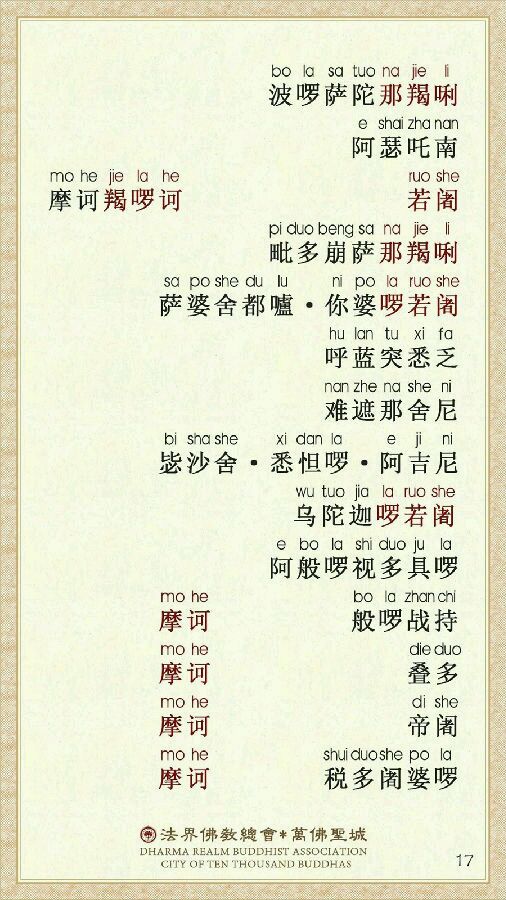 bo la sa tuo na jie li
波啰萨陀那羯唎
e shai zha nan
阿瑟吒南
mo he jie la he ruo she
摩诃羯啰诃 若阇
pi duo beng sa na jie li
毗多崩萨那羯唎
sa po she du lu ni po la ruo she
萨婆舍都嚧·你婆啰若阇
hu lan tu xi fa
呼蓝突悉乏
nan zhe na she ni
难遮那舍尼
bi sha she xi dan la e ji ni
毖沙舍·悉怛啰·阿吉尼
wu tuo jia la ruo she
乌陀迦啰若阇
e bo la shi duo ju la
阿般啰视多具啰
mo he bo la zhan chi
摩诃 般啰战持
mo he die duo
摩诃 叠多
mo he di she
摩诃 帝阇
mo he shui duo she po la
摩诃 税多阇婆啰
法界佛教總會*萬佛聖城
DHARMA REALM BUDDHIST ASSOCIATION
CITY OF TEN THOUSAND BUDDHAS
17